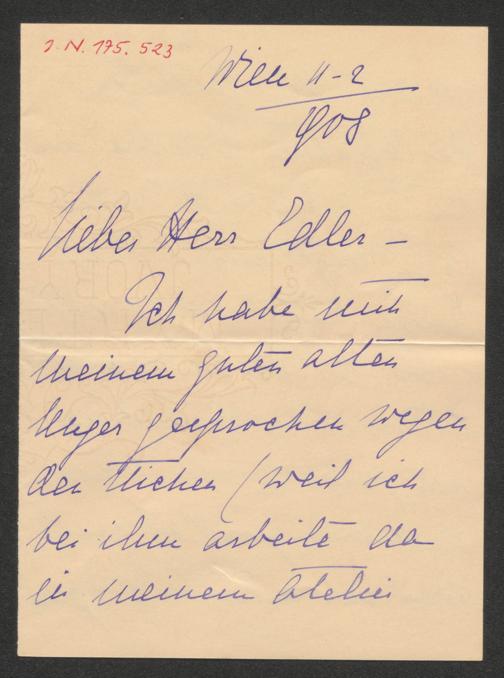 J. N. 175.523
Wien 11-2
908
Lieber Herr Edler –
Ich habe mit
meinem guten alten
Unger gesprochen wegen
den Stichen (weil ich
bei ihm arbeite da
in meinem Atelier